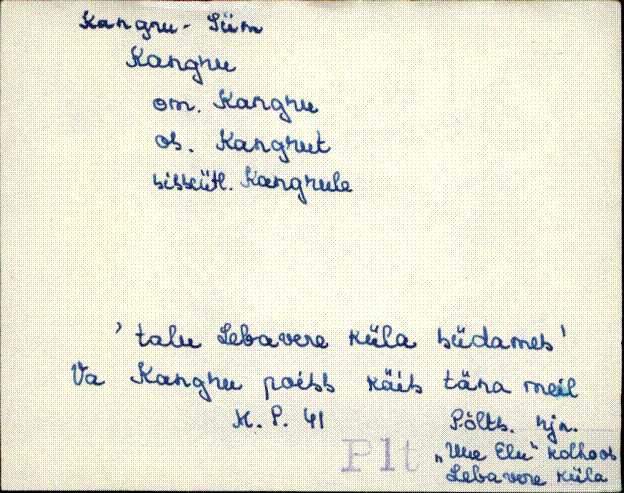 Kangru - Siim
Kangru
om. Kangru
os. Kangrut
sisseütl. Kangrule
' talu Lebavere küla südames '
Va Kangru poiss käis täna meil
K. P. 41
Põlts. rjn.
Plt
"Uue Elu" kolhoos
Lebavere küla